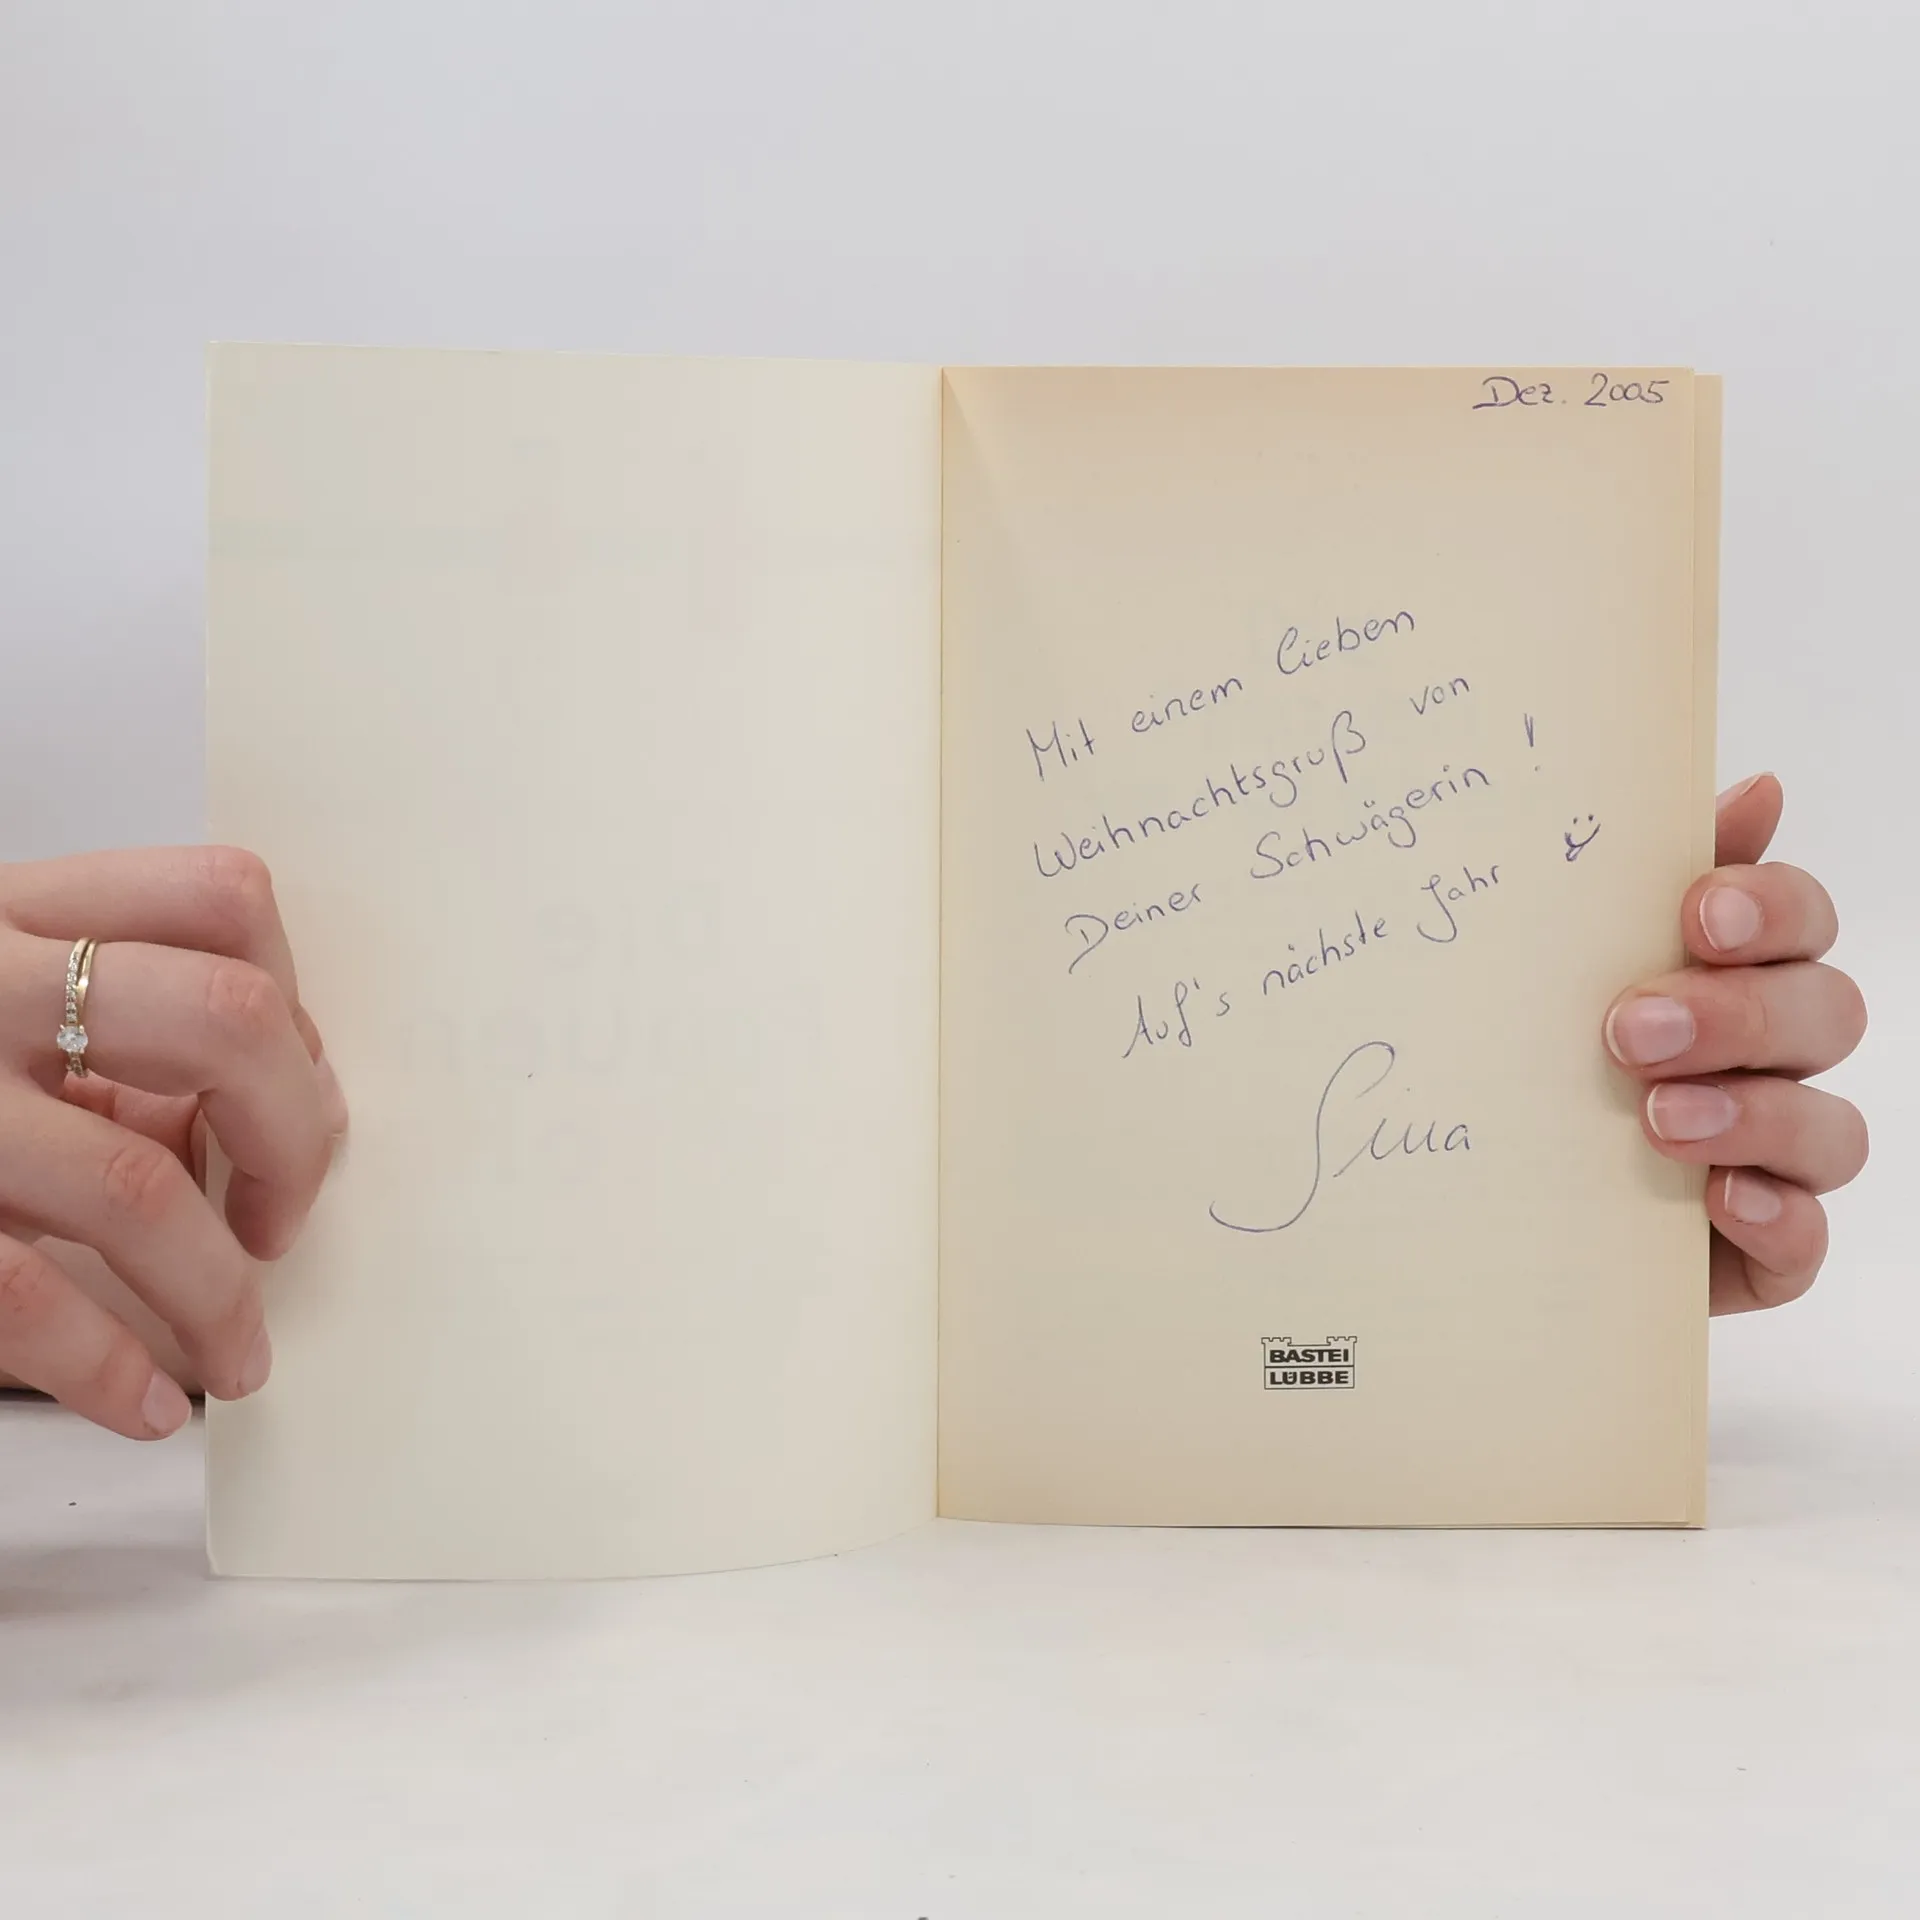 Dez. 2005
Mit einem lieben
Weihnachtsgruß von
Deiner Schwägerin!
Auf's nächste Jahr
Sina
BASTEI
LÜBBE